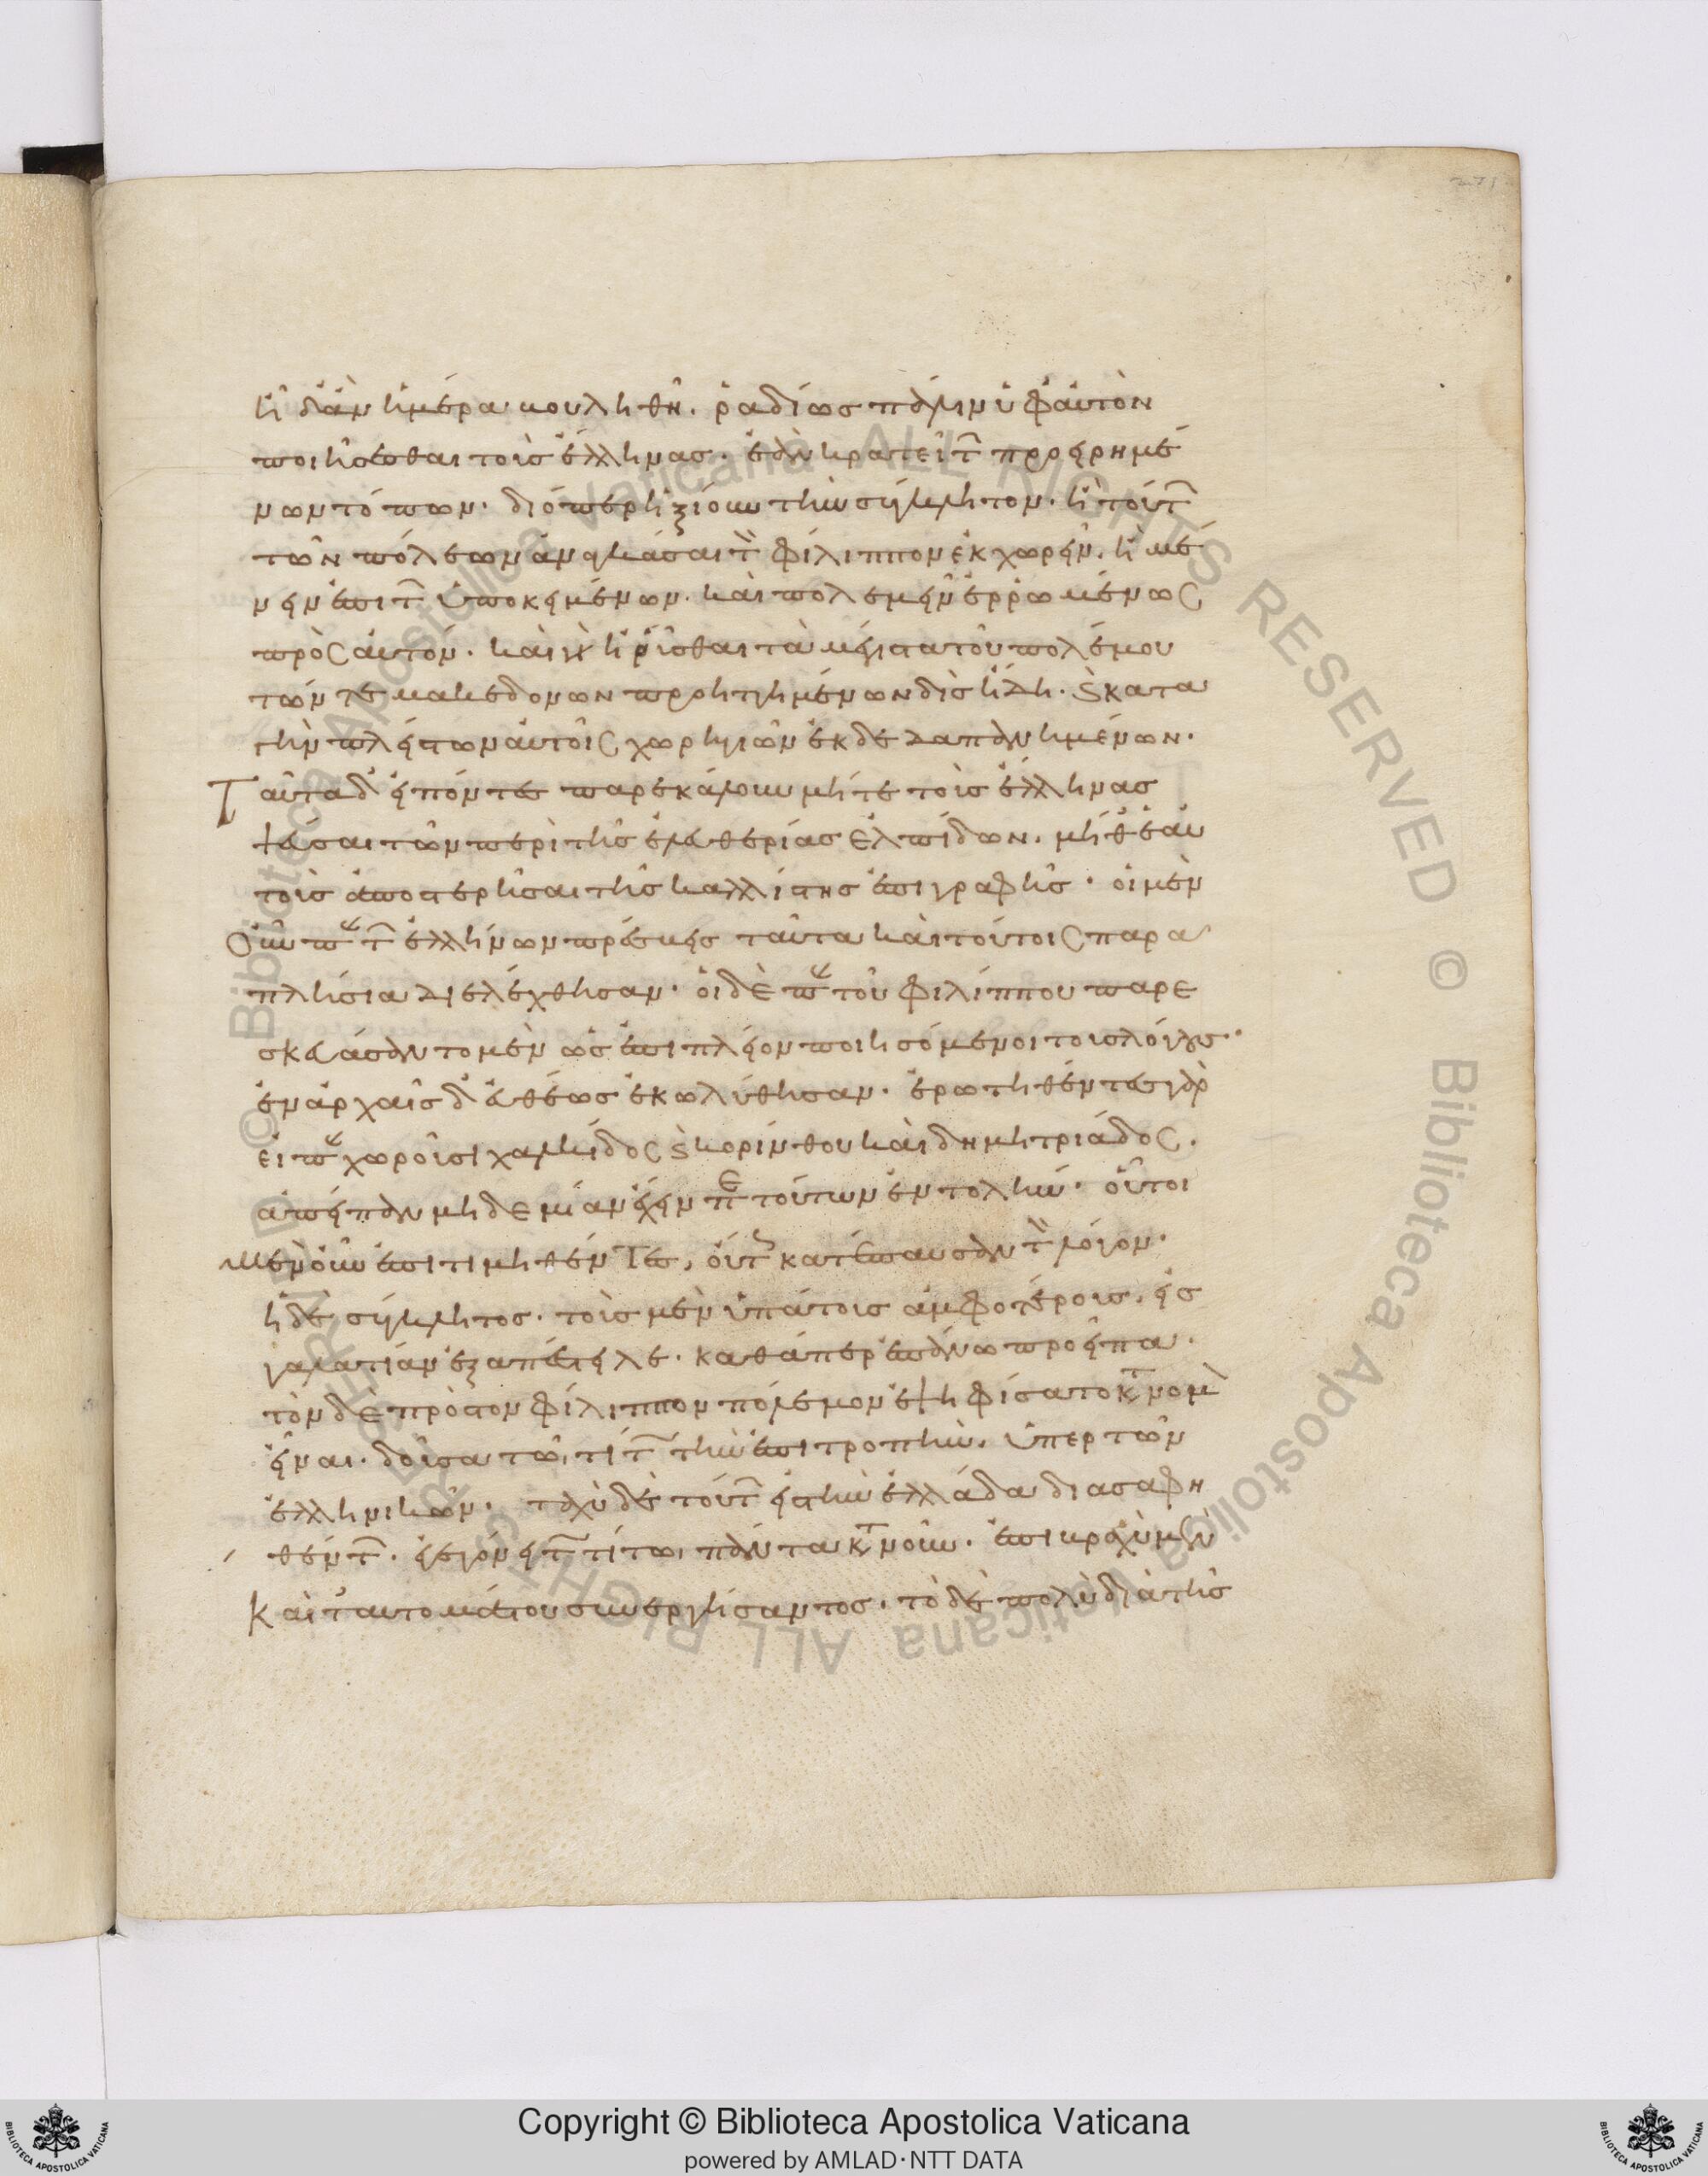 ἧ δἂν ἡμέρα βουληθῆ. ῥαδίως πάλιν ὑφ αὑτὸν
ποιήσεσθαι τοὺς ἕλληνας. ἐὰν κρατεῖ τῶν προειρημέ
νων τόπων. διόπερ ἠξίουν τὴν σύγκλητον. ἢ τούτων
τῶν πόλεων ἀναγκάσαι τὸν φίλιππον ἐκχωρεῖν. ἢ μέ
νειν ἐπι τῶν ὑποκειμένων. καὶ πολεμεῖν ἐρρωμένως
πρὸς αὐτόν. καὶ γὰρ ἡρῖσθαι τὰ μέγιστα τοῦ πολέμου
τῶν τε μακεδονων προηττημένων δὶς ἤδη. καὶ κατα
τὴν πλείστων αὐτοῖς χωρηγιῶν ἐκδεδαπανημένων.
Ταῦτα δ εἰπόντες παρεκάλουν μήτε τοὺς ἕλληνας
ψεῦσαι τῶν περὶ τῆς ἐλευθερίας ἐλπίδων. μήθ ἑαυ
τοὺς ἀποστερῆσαι τῆς καλλίστης ἐπιγραφῆς. οἱ μὲν
Οὖν παρὰ τῶν ἑλλήνων πρέσβεις ταῦτα καὶ τούτοις παρα
πλήσια διελέχθησαν. οἱ δὲ παρὰ τοῦ φιλίππου παρε
σκευάσαντο μὲν ὡς ἐπι πλεῖον ποιησόμενοι τοὺς λόγους.
ἐν ἀρχαῖς δ εὐθέως ἐκωλύθησαν. ἐρωτηθέντες γὰρ
εἰ παραχωροῦσι χαλκίδος καὶ κορίνθου καὶ δημητριάδος.
ἀπεῖπαν μηδεμίαν ἔχειν περὶ τούτων ἐντολήν. οὗτοι
μὲν οὖν ἐπιτιμηθέντες, οὕτως κατέπαυσαν τὸν λόγον.
ἡ δὲ σύγκλητος. τοὺς μὲν ὑπάτους ἀμφοτέρους, εἰς
γαλατίαν ἐξαπέστειλε. καθάπερ ἐπάνω προεῖπα.
τὸν δὲ πρὸς τὸν φίλιππον πόλεμον ἐψηφίσατο κατάμονον
εἶναι. δοῦσα τῶ τίτω τὴν ἐπιτροπὴν. ὑπερ τῶν
ἑλληνικῶν. ταχὺ δὲ τούτων εἰς τὴν ἑλλάδα διασαφη
θέντων. ἐγεγόνει τῶ τίτω, πάντα κατὰ νοῦν. ἐπι βραχὺ μὲν
Καὶ ταυτομάτου συνεργήσαντος. τὸ δὲ πολὺ διὰ τῆς
© Biblioteca Apostolica Vaticana ALL RIGHTS RESERVED
© Biblioteca Apostolica Vaticana ALL RIGHTS RESERVED
Copyright © Biblioteca Apostolica Vaticana
powered by AMLAD·NTT DATA